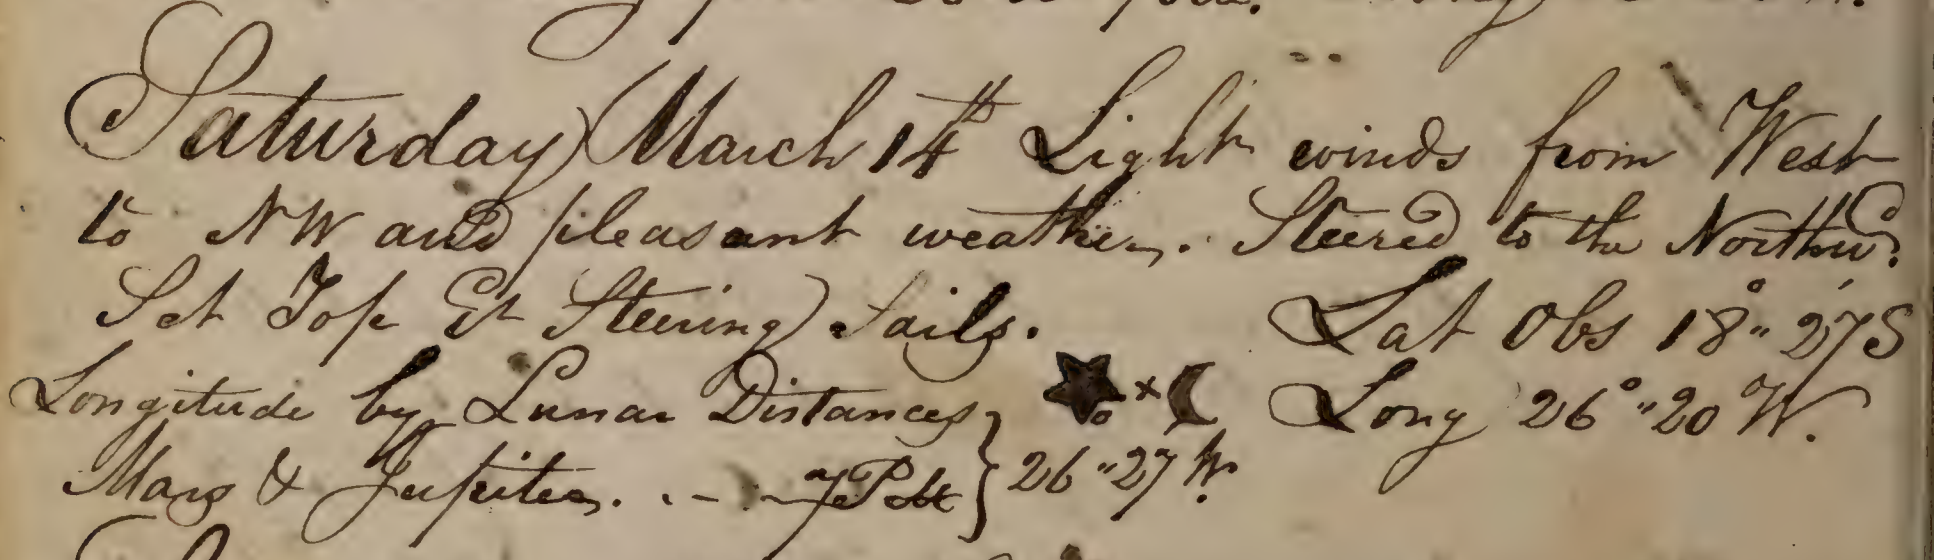 Saturday March 14th Light winds from West
to NW and pleasant weather. Steered to the Northwd.
Set Top Gt Steering Sails. Lat Obs 18°" 27'S
Longitude by Lunar Distances Long 26°" 20 W.
Mars & Jupiter. } 26 " 27 W.